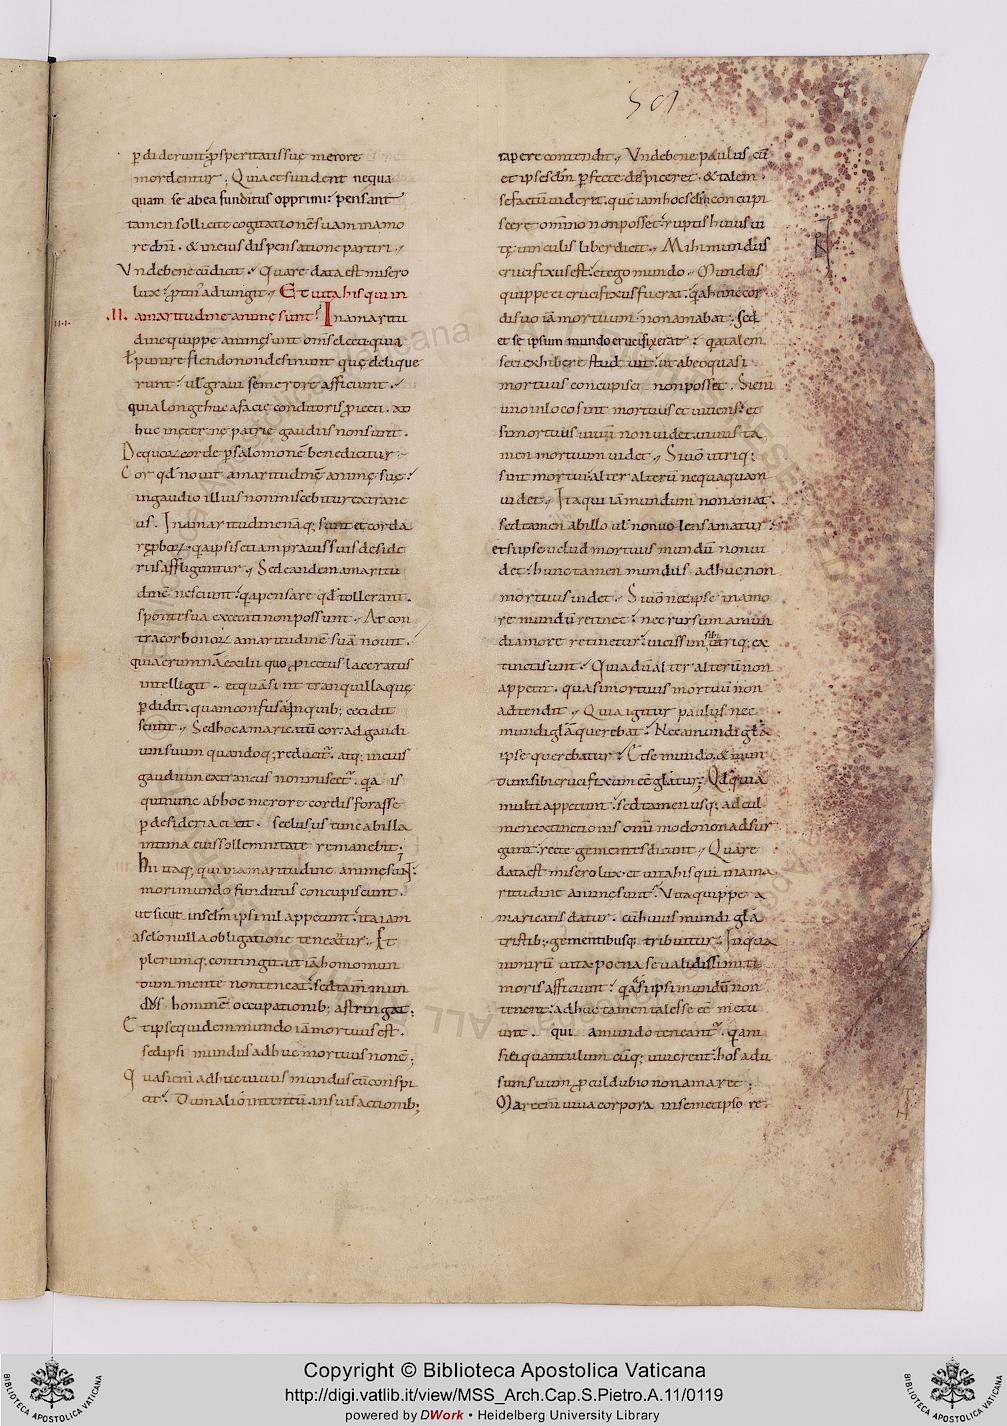 501
p̱diderunt; ꝓsperitatis suę merore
mordentur; Quia et si vident nequa
quam se ab ea funditus opprimi; pensant
tamen sollicite cogitationē suam in amo
re dn̄i. & in eius dispensatione partiri.
Vnde bene cū dicit. Quare data est misero
lux; ꝓtin' adiungit. Et uita his qui in
.II. amaritudine animę sunt; In amaritu
dine quippe animę sunt om̄s electi. quia
ł punire flendo non desinunt quę delique
runt; ul̄ graui se merore afficiunt.
quia longe huc a facie conditoris ꝓiecti. ad
huc in eternę patrię gaudiis non sunt.
De quoꝝ corde p̱ salomonē bene dicitur;
Cor qd̄ nouit amaritudinē animę suę;
in gaudio illius non miscebitur extrane
us. In amaritudine nāq; sunt et corda
reꝓboꝝ. q̄a ipsis etiam prauis suis deside
riis affliguntur. Sed eandem amaritu
dinē nesciunt; q̄a pensare qd̄ tollerant.
sponte sua excecati non possunt. At con
tra cor bonoꝝ amaritudinē suā nouit.
quia erumnā exilii in quo ꝓiectus laceratus
intelligit. et quā sint tranquilla quę
p̱didit. quam confusa in quib; cecidit
sentit. Sed hoc amaricatū cor. ad gaudi
um suum quandoq; reducit'. atq; in eius
gaudium extraneus non miscet'. q̄a is
qui nunc ab hoc merore cordis foras se
p̱ desideria eicit. seclusus tunc ab illa
intima eius sollemnitate remanebit;
Hii itaq; qui in amaritudine animę sunt.
mori mundo funditus concupiscunt.
ut sicut in sclō ipsi nil appetunt; ita iam
a sclō nulla obligatione teneantur. Et
plerumq; contingit. ut iā homo mun
dum mente non teneat; sed tam̄ mun
dus hominē occupationib; astringat;
Et ipse quidem mundo iā mortuus est.
sed ipsi mundus adhuc mortuus non ē;
Quasi eni adhuc uiuus mundus eū conspi
cit; dum alio intentū. in suis actionib;
rapere contendit. Vnde bene paulus cū
et ipse sclm̄ p̱fecte despiceret. & talem
se factū uideret. quē iam hoc sclm̄ concupi
scere omnino non posset; ruptis huius ui
tę uinculis liber dicit. Mihi mundus
crucifixus est; et ego mundo. Mundus
quippe ei crucifixus fuerat. q̄a hunc cor
di suo iā mortuum. non amabat; Sed
et sę ipsum mundo crucifixerat; q̄a talem
se ei exhibere studuit. ut ab eo quasi
mortuus concupisci non posset. Si eni
uno in loco sint mortuus et uiuens; et
si mortuus uiuum non uidet. uiuus ta
men mortuum uidet. Si uō utriq;
sunt mortui. alter alterū nequaquam
uidet. Ita qui iā mundum non amat.
sed tamen ab illo ul̄ non uolens amatur;
et si ipse uelud mortuus mundū non ui
det; hunc tamen mundus adhuc non
mortuus uidet. Si uō nec ipse in amo
re mundū retinet; nec rursum a mun
di amore retinetur; uicissim sibi utriq; ex
tincti sunt. Quia dū alter alterū non
appetit. quasi mortuus mortuū non
adtendit. Quia igitur paulus nec
mundi glā querebat; Nec a mundi glā
ipse querebatur; Et se mundo. & mun
dum sibi crucifixum eē glatur; Qd̄ quia
multi appetunt; sed tamen usq; ad cul
men extinctionis om̄i modo non adsur
gunt; recte gementes dicunt. Quare
data est misero lux. et uita his qui in ama
ritudine animę sunt; Vita quippe a
maricatis datur. cū huius mundi glā
tristib;. gementibusq; tribuitur. In qua
nimirū uita. poena se ualidissimi ti
moris afficiunt; q̄a & si ipsi mundū non
tenent; adhuc tamen tales se eē metu
unt. qui a mundo teneant'. q̄am
si ei quantulum cūq; uiuerent; hos ad u
sum suum ꝓcul dubio non amaret;
Mare eni uiua corpora in semetipso re
Copyright © Biblioteca Apostolica Vaticana
http://digi.vatlib.it/view/MSS_Arch.Cap.S.Pietro.A.11/0119
powered by DWork • Heidelberg University Library
BIBLIOTECA APOSTOLICA VATICANA
BIBLIOTECA APOSTOLICA VATICANA